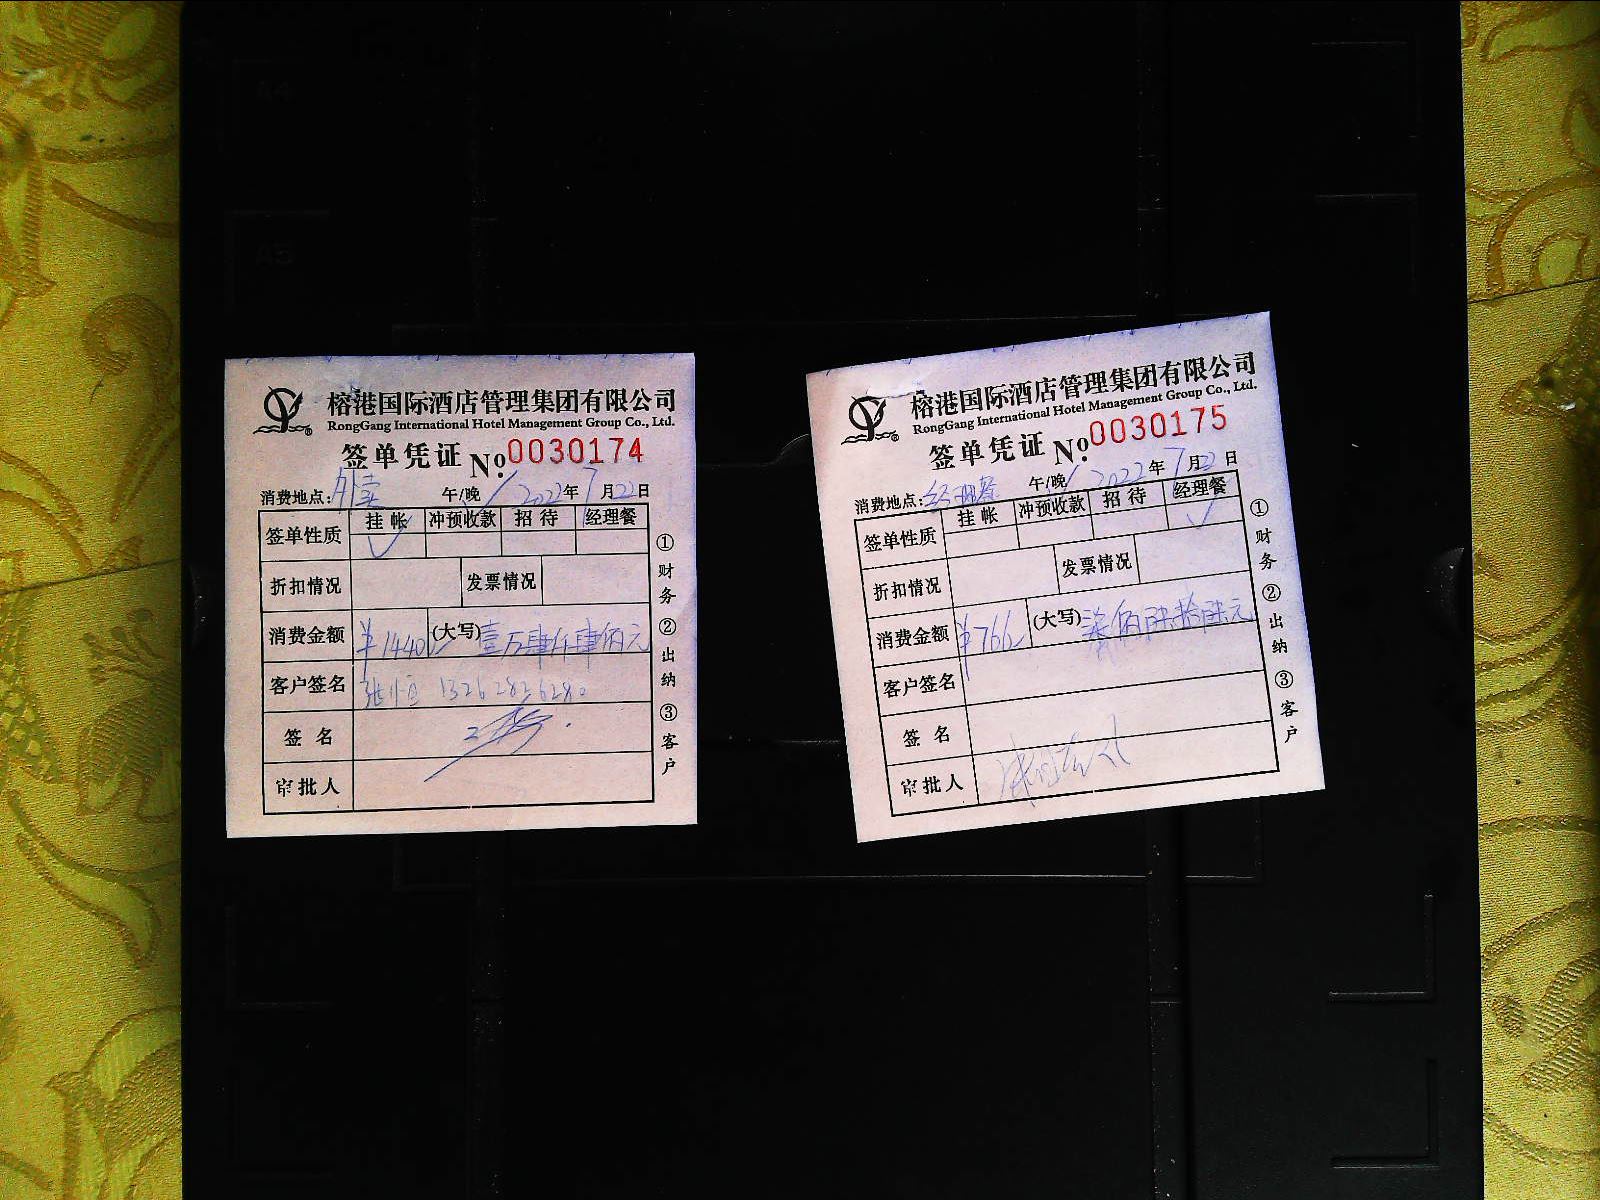 榕港国际酒店管理集团有限公司
RongGang International Hotel Management Group Co., Ltd.
签单凭证 No. 0030174
消费地点: 外卖 午/晚 2022年7月22日
签单性质 挂帐 冲预收款 招待 经理餐
✓
折扣情况 发票情况
消费金额 ¥1440 (大写) 壹万肆仟肆佰元
客户签名 张恒 13262826280
签名
审批人
①财务 ②出纳 ③客户
榕港国际酒店管理集团有限公司
RongGang International Hotel Management Group Co., Ltd.
签单凭证 No. 0030175
消费地点: 经理餐 午/晚 2022年7月22日
签单性质 挂帐 冲预收款 招待 经理餐
✓
折扣情况 发票情况
消费金额 ¥766 (大写) 柒佰陆拾陆元
客户签名
签名
审批人
①财务 ②出纳 ③客户